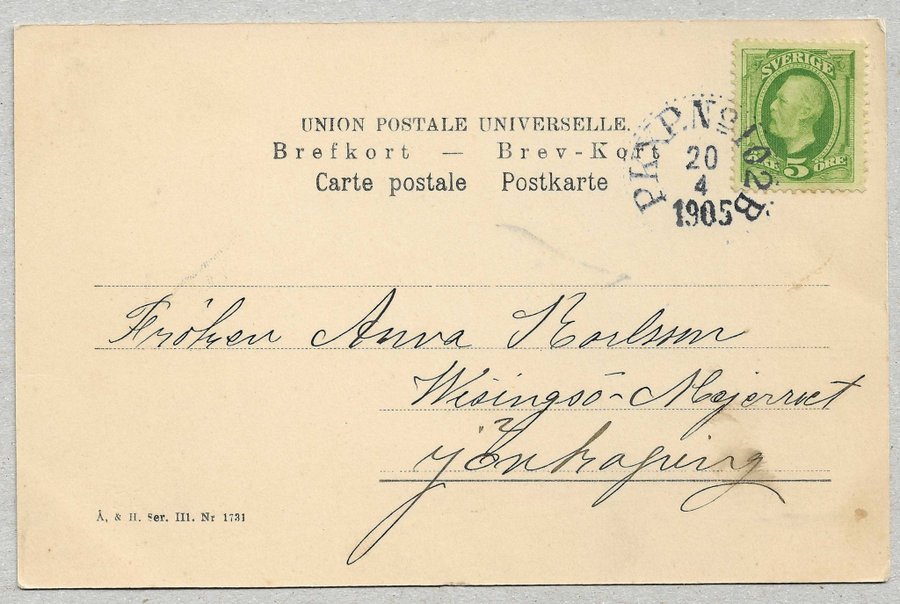 SVERIGE
5 ÖRE ÖRE
UNION POSTALE UNIVERSELLE.
Brefkort — Brev-Kort
Carte postale Postkarte
PKXP. No 102 B
20
4
1905
Fröken Anna Karlsson
Wisingsö-Mejerret
Jönkoping
Å. & H. Ser. III. Nr 1731